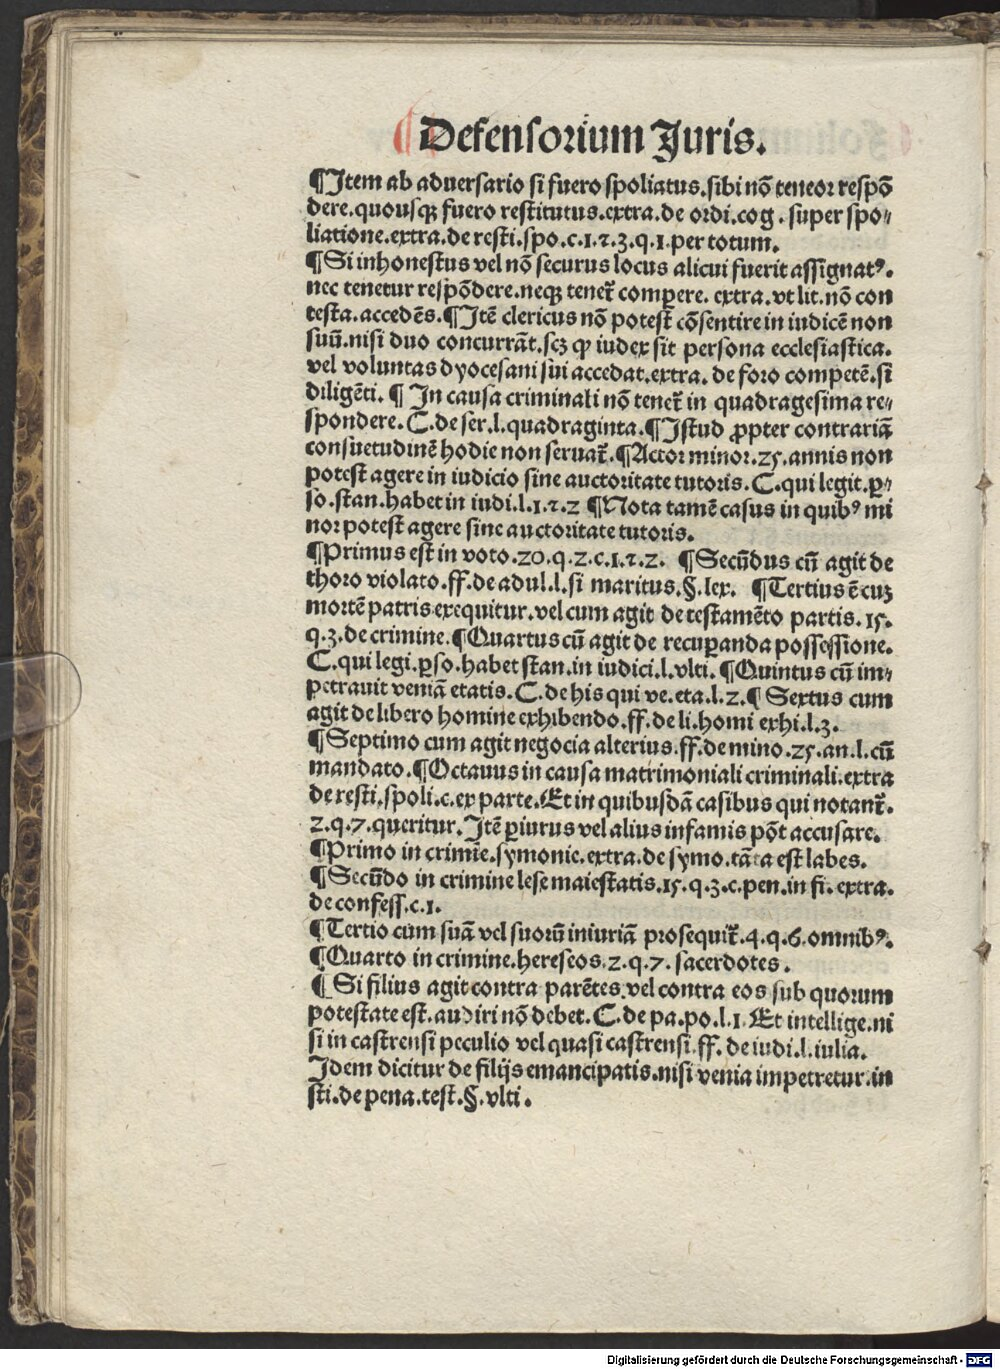 ¶ Defensorium Juris.
¶Item ab aduersario si fuero spoliatus.sibi nõ teneor respõ
dere.quousqꝫ fuero restitutus.extra.de ordi.cog.super spo⸗
liatione.extra.de resti.spo.c.1.⁊.3.q.1.per totum.
¶Si inhonestus vel nõ securus locus alicui fuerit assignatꝰ.
nec tenetur respõdere.neqꝫ tenet̃ compere. extra.vt lit.nõ con
testa.accedẽs.¶Itẽ clericus nõ potest cõsentire in iudicẽ non
suũ.nisi duo concurrãt.scꝫ ꝙ iudex sit persona ecclesiastica.
vel voluntas dyocesani sui accedat.extra. de foro competẽ.si
diligẽti. ¶ In causa criminali nõ tenet̃ in quadragesima re⸗
spondere. C.de fer.l.quadraginta.¶Istud ꝓpter contrariã
consuetudinẽ hodie non seruat̃.¶Actor minor.25.annis non
potest agere in iudicio sine auctoritate tutoris. C.qui legit.ꝑ⸗
so.stan.habet in iudi.l.1.⁊.2 ¶Nota tamẽ casus in quibꝰ mi
nor potest agere sine auctoritate tutoris.
¶Primus est in voto.20.q.2.c.1.⁊.2. ¶Secũdus cũ agit de
thoro violato.ff.de adul.l.si maritus.§.lex. ¶Tertius ẽ cuꝫ
mortẽ patris exequitur.vel cum agit de testamẽto partis.15.
q.3.de crimine.¶Quartus cũ agit de recuꝑanda possessione.
C.qui legi.ꝑso.habet stan.in iudici.l.vlti.¶Quintus cũ im⸗
petrauit veniã etatis.C.de his qui ve.eta.l.2.¶ Sextus cum
agit de libero homine exhibendo.ff.de li.homi exhi.l.3.
¶Septimo cum agit negocia alterius.ff.de mino.25.an.l.cũ
mandato.¶Octauus in causa matrimoniali criminali.extra
de resti.spoli.c.ex parte.Et in quibusdã casibus qui notant̃.
2.q.7.queritur.Itẽ ꝑiurus vel alius infamis põt accusare.
¶Primo in crimĩe.symonie.extra.de symo.tãta est labes.
¶Secũdo in crimine lese maiestatis.15.q.3.c.pen.in fi.extra.
de confess.c.1.
¶Tertio cum suã vel suorũ iniuriã prosequit̃.4.q.6.omnibꝰ.
¶Quarto in crimine.hereseos.2.q.7. sacerdotes.
¶ Si filius agit contra parẽtes.vel contra eos sub quorum
potestate est.audiri nõ debet. C.de pa.po.l.1.Et intellige.ni
si in castrensi peculio vel quasi castrensi.ff.de iudi.l.iulia.
Idem dicitur de filijs emancipatis.nisi venia impetretur.in
sti.de pena.test.§.vlti.
Digitalisierung gefördert durch die Deutsche Forschungsgemeinschaft - DFG